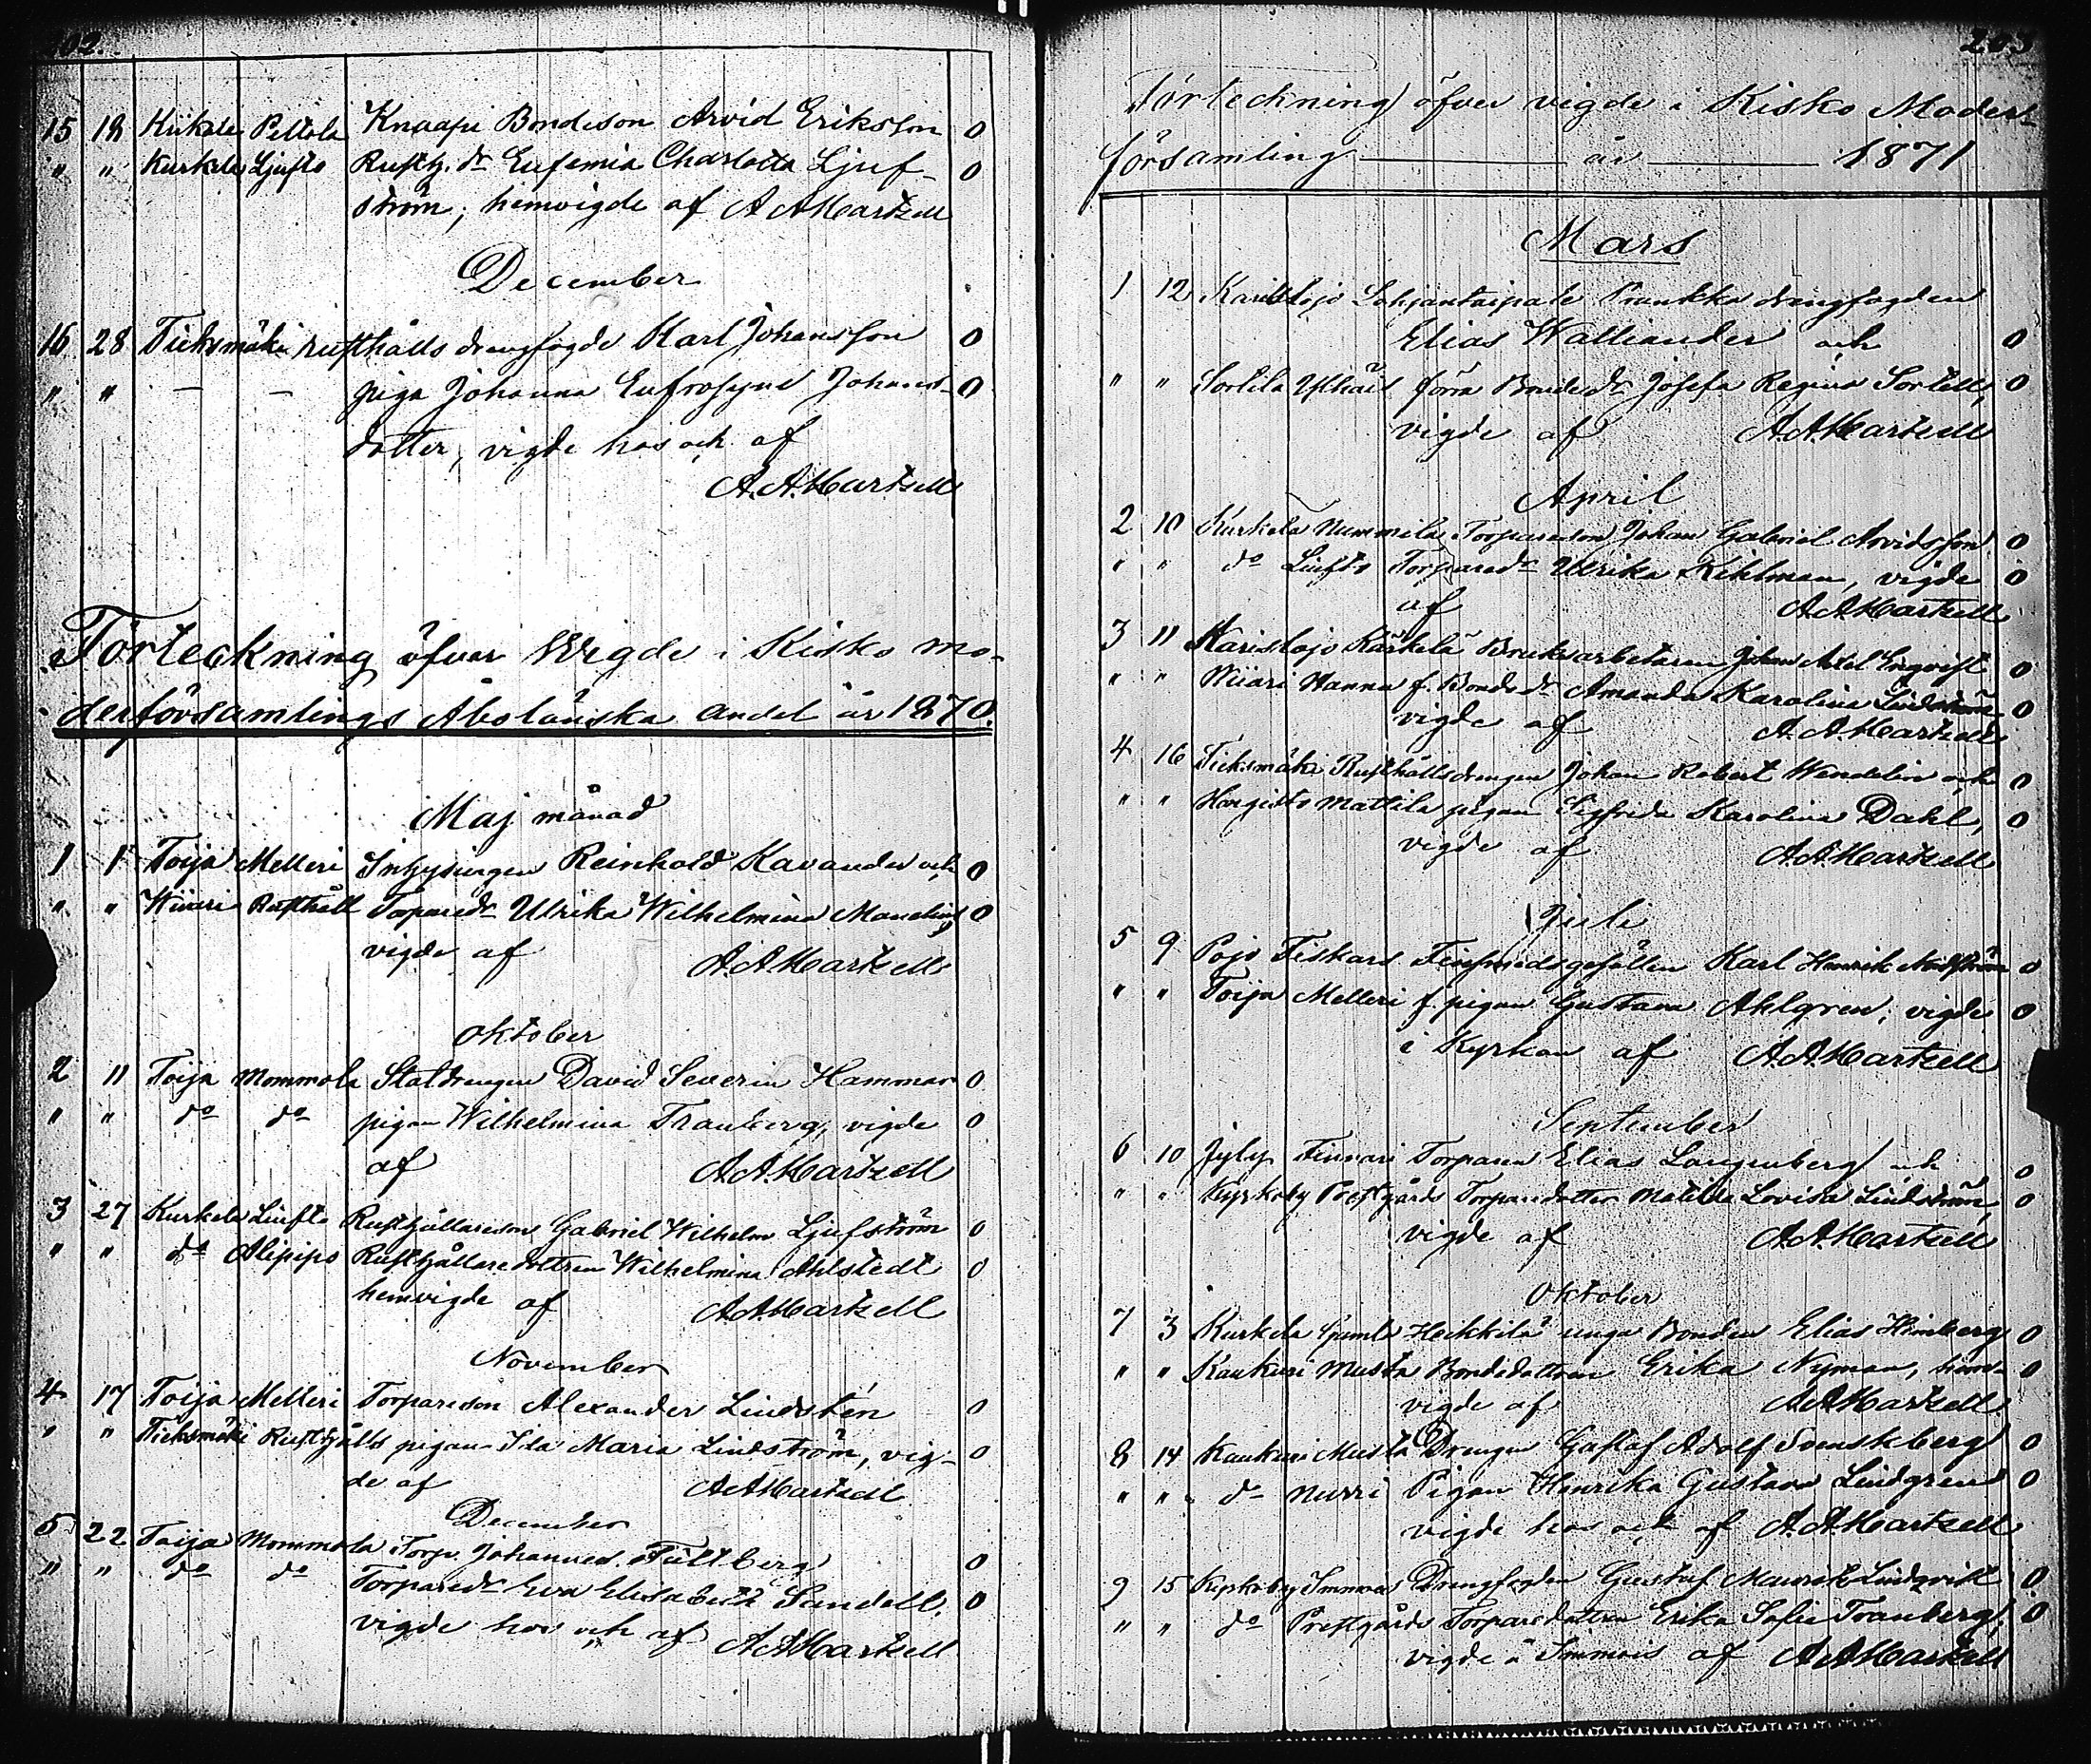 202.
15 18 Kiikala Peltola Knaapi Bondeson Arvid Eriksson 0
" " Kurkela Ljufto Rusth. dr Eufemia Charlotta Ljuf- 0
ström; hemvigde af A A Hartzell
December
16 28 Ticksmäki rusthålls drengfogde Karl Johansson 0
" " — — piga Johanna Eufrosyne Johans- 0
dotter, vigde hos och af
A. A. Hartzell
Förteckning öfver Wigde i Kisko mo-
derförsamlings Åbolänska andel år 1870.
Maj månad
1 1 Toija Melleri Inhysingen Reinhold Kavander och 0
" " Wiiari Rusthåll Torparedr Ulrika Wilhelmina Mandelin, 0
vigde af A. A. Hartzell
Oktober
2 11 Toija Mommola Statdrengen David Severin Hammar 0
" " do do pigan Wilhelmina Tranberg, vigde 0
af A. A. Hartzell
3 27 Kurkela Liufto Rusthållareson Gabriel Wilhelm Ljufström 0
" " do Alipipo Rusthållaredottren Wilhelmina Ahlstedt 0
hemvigde af A. A. Hartzell
November
4 17 Toija Melleri Torpareson Alexander Lindstén 0
" " Ticksmäki Rusthålls pigan Ida Maria Lindström, vig- 0
de af A A Hartzell
December
5 22 Toija Mommola Torp. Johannes 0
" " do do Torparedr Eva Elisabeth Sandell, 0
vigde hos och af A A Hartzell
203
Förteckning öfver vigde i Kisko Moder-
församling — år — 1871
Mars
1 12 Karislojo Lohjantaipale Prankka drengfogden
Elias Walleander och 0
" " Sorlila Ylhäis förra Bondedr Josefa Regina Sortell, 0
vigde af A. A. Hartzell
April
2 10 Kurkela Nummila Torpareson Johan Gabriel Arvidsson 0
" " do Liufto Torparedr Ulrika Kihlman, vigde 0
af A A Hartzell
3 11 Karislojo Kärkelä Bruksarbetaren Johan Axel Engqvist 0
" " Wiiari Hannu f. Bondedr Amanda Karolina Lindström 0
vigde af A. A. Hartzell
4 16 Ticksmäki Rusthållsdrengen Johan Robert Wendelin och 0
" " Hongisto Mattila pigan Sigfrida Karolina Dahl, 0
vigde af A A Hartzell
Juli
5 9 Pojo Fiskars Finsmedsgesällen Karl Henrik 0
" " Toija Melleri f. pigan Gustava Ahlgren, vigde 0
i Kyrkan af A. A. Hartzell
September
6 10 Jyly Finnari Torparen Elias Langenberg och 0
" " Kyrkoby Prestgårds Torparedotter Matilda Lovisa Lindström, 0
vigde af A. A. Hartzell
Oktober
7 3 Kurkela Gamla Heikkilä unga Bonden Elias Himberg 0
" " Kaukuri Musta Bondedottren Erika Nyman, hem- 0
vigde af A A Hartzell
8 14 Kaukuri Musta Drengen Gustaf Adolf Svenskberg 0
" " do Nurri Pigan Henrika Gustava Lindgren 0
vigde hos och af A. A. Hartzell
9 15 Kyrkoby Immois Drengfogden Gustaf Mauritz Lindqvist 0
" " do Prestgårds Torparedottren Erika Sofia Tranberg, 0
vigde å Immois af A A Hartzell